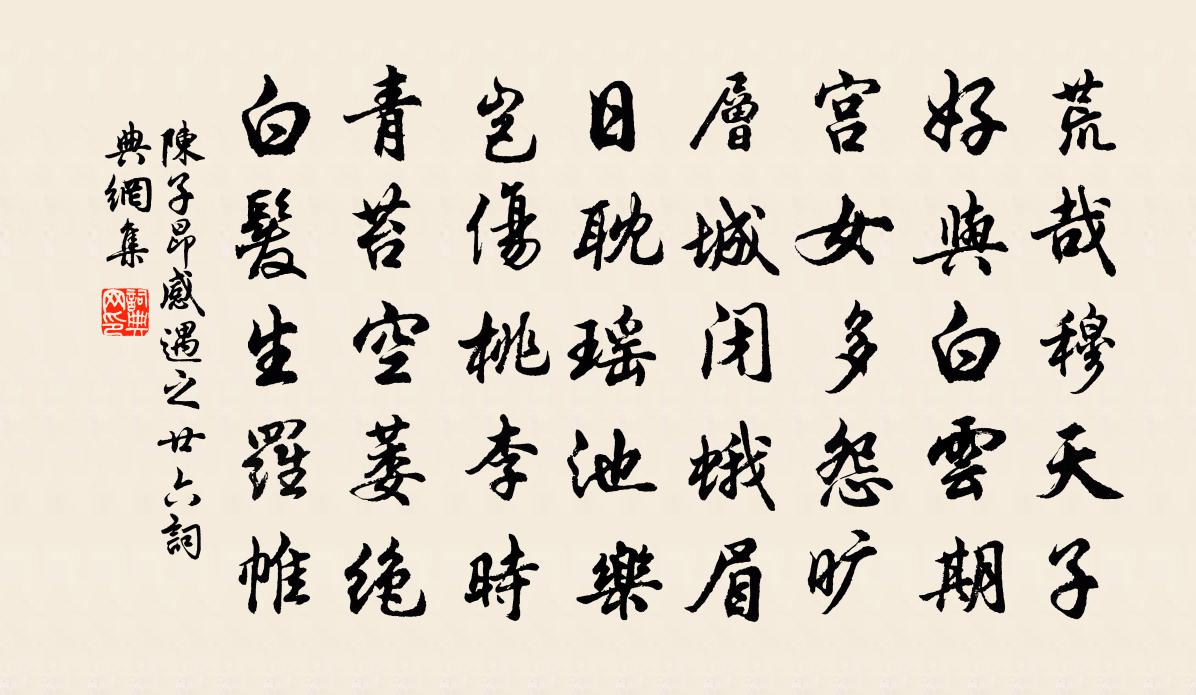 荒哉穆天子
好與白雲期
宫女多怨旷
層城闭蛾眉
日耽瑶池樂
豈傷桃李時
青苔空萎绝
白髮生羅帷
陳子昂感遇之廿六詞
典網集
詞典
网印